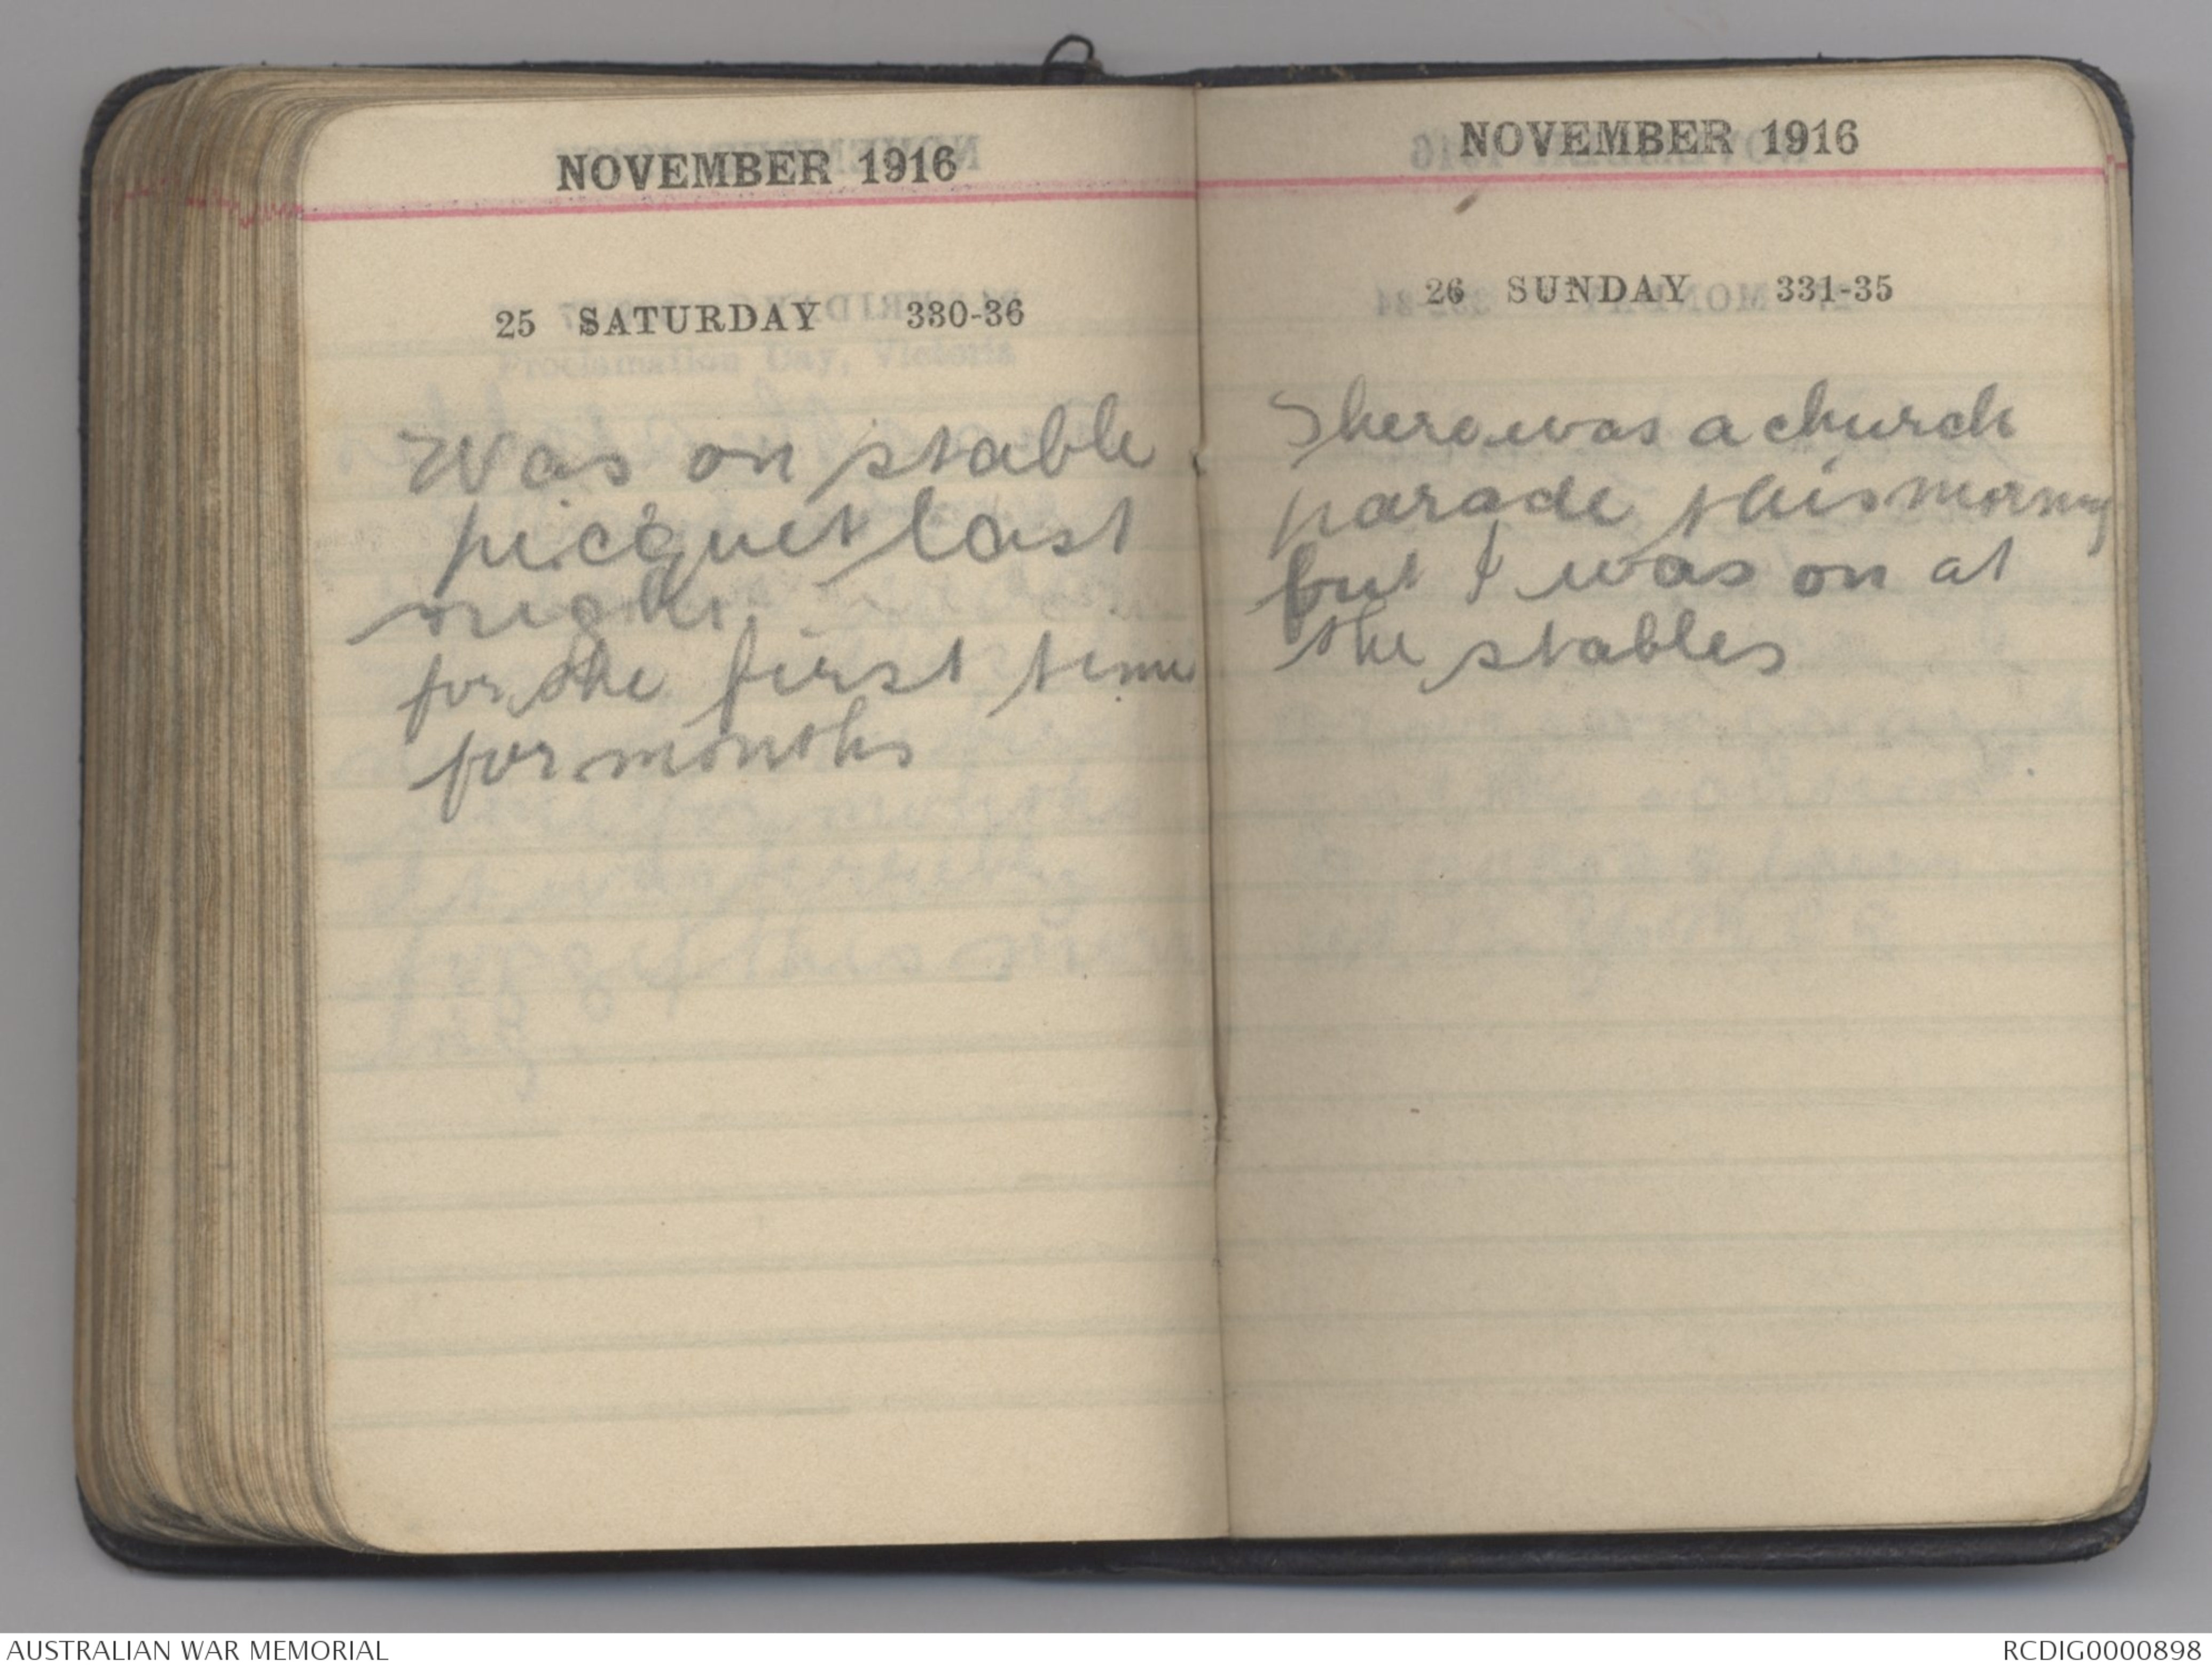 NOVEMBER 1916
25 SATURDAY 330-36
Was on stable
picquet last
night
for the first time
for months
NOVEMBER 1916
26 SUNDAY 331-35
There was a church
parade this morning
but I was on at
the stables
AUSTRALIAN WAR MEMORIAL
RCDIG0000898